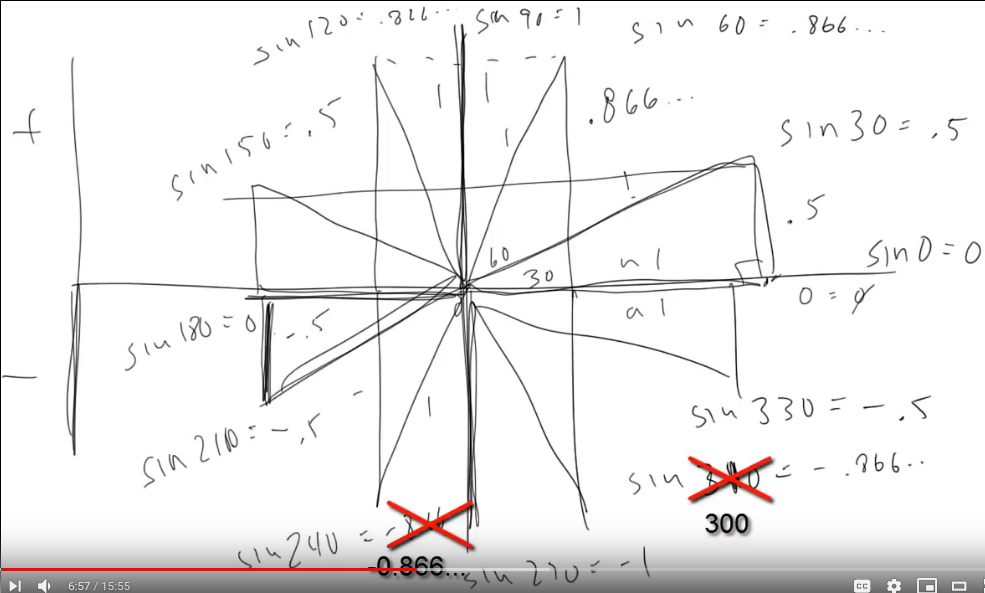 sin 120 = .866...
sin 90 = 1
sin 60 = .866...
+
sin 150 = .5
1
1
1
.866...
sin 30 = .5
1
.5
60
30
n 1
sin 0 = 0
0 = 0
0
a 1
sin 180 = 0
-.5
-
-
1
sin 210 = -.5
sin 330 = -.5
sin = -.866..
300
sin 240 = -
-0.866...
sin 270 = -1
6:57 / 15:55
CC